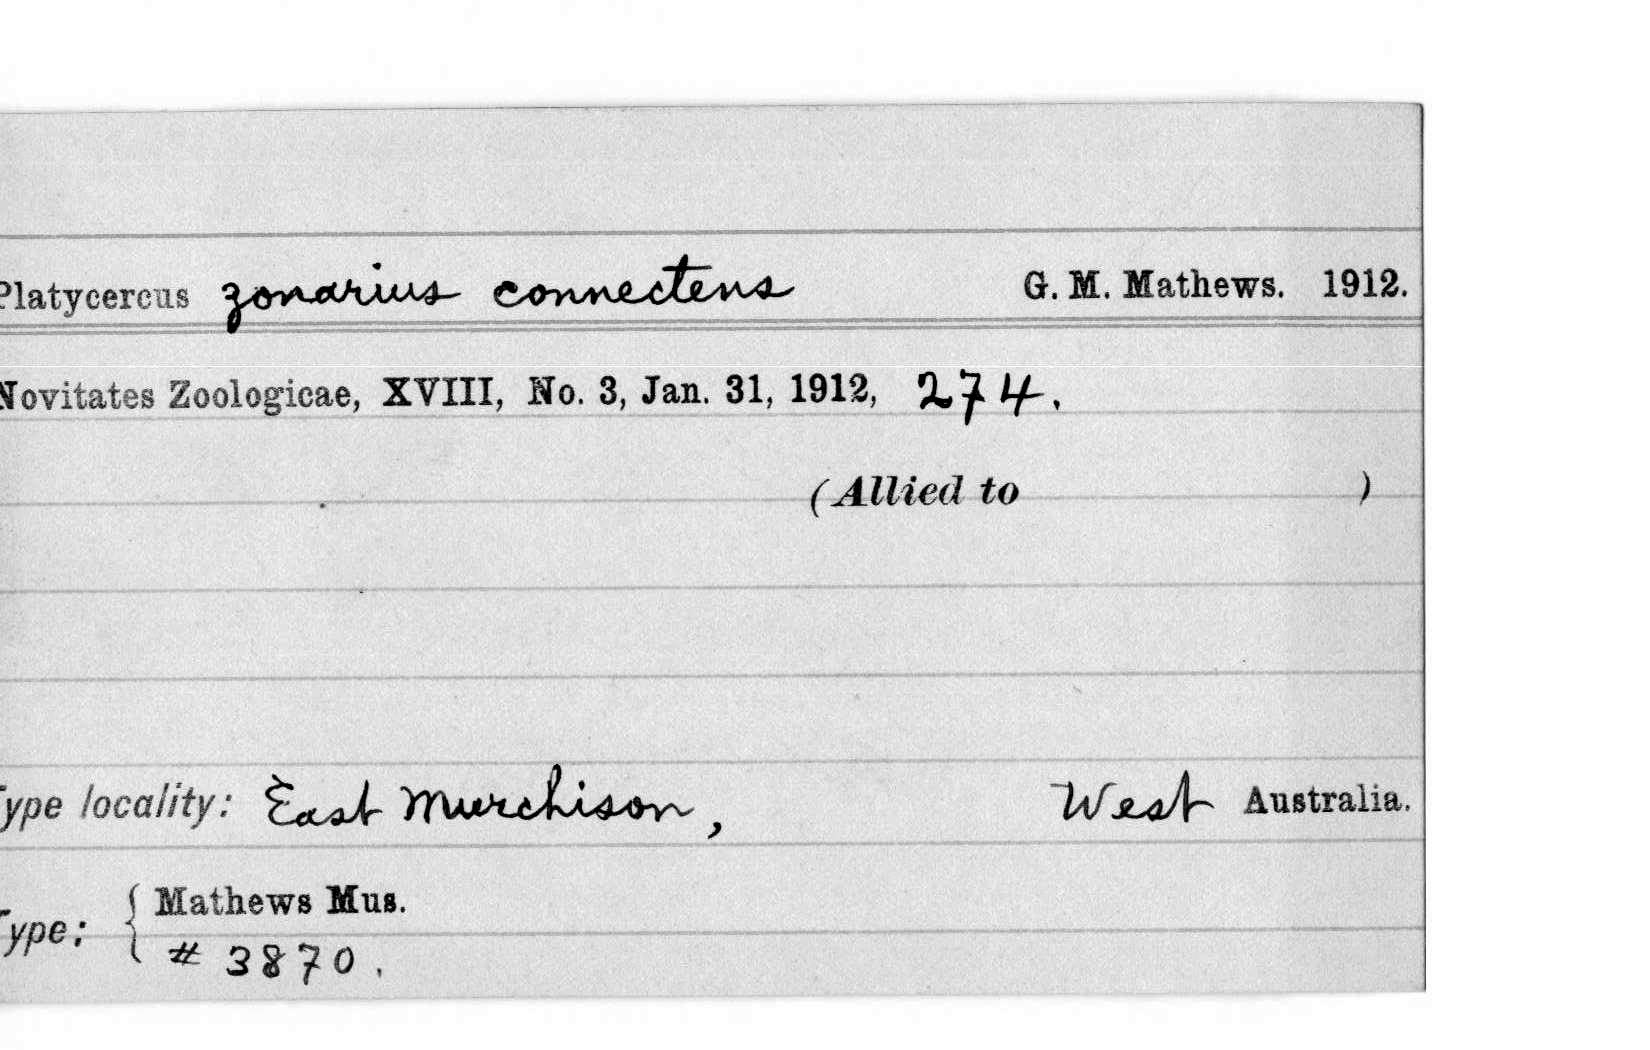 Platycercus zonarius connectens G. M. Mathews. 1912.
Novitates Zoologicae, XVIII, No. 3, Jan. 31, 1912, 274.
(Allied to )
Type locality: East Murchison, West Australia.
Type: { Mathews Mus.
# 3870.